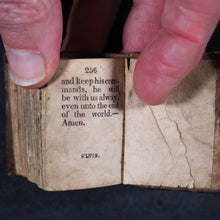 256
and keep his com-
mands, he will
be with us alway,
even unto the end
of the world.—
Amen.
FINIS.